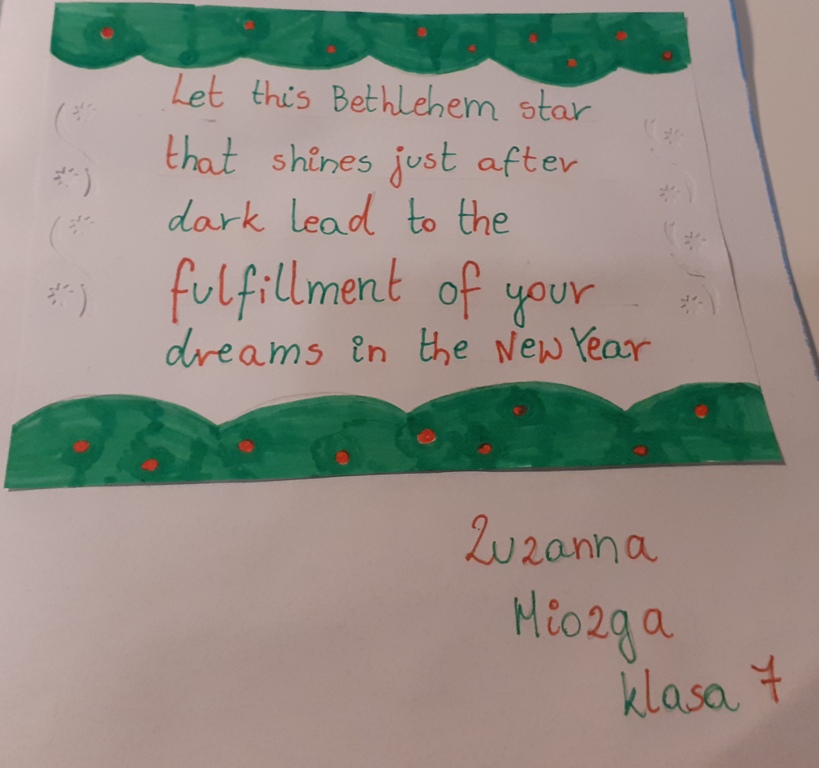 Let this Bethlehem star
that shines just after
dark lead to the
fulfillment of your
dreams in the New Year
Zuzanna
Miozga
klasa 7